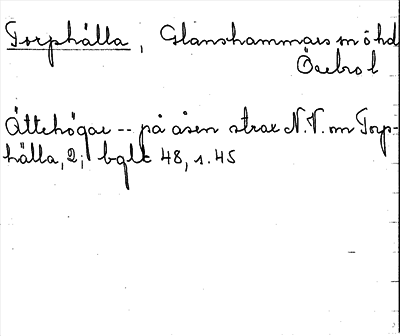 Torphälla, Glanshammars sn ö hd
Örebro l
Ättehögar -- på åsen strax N.V. om Torp-
hälla, 2; bglt 48, s. 45